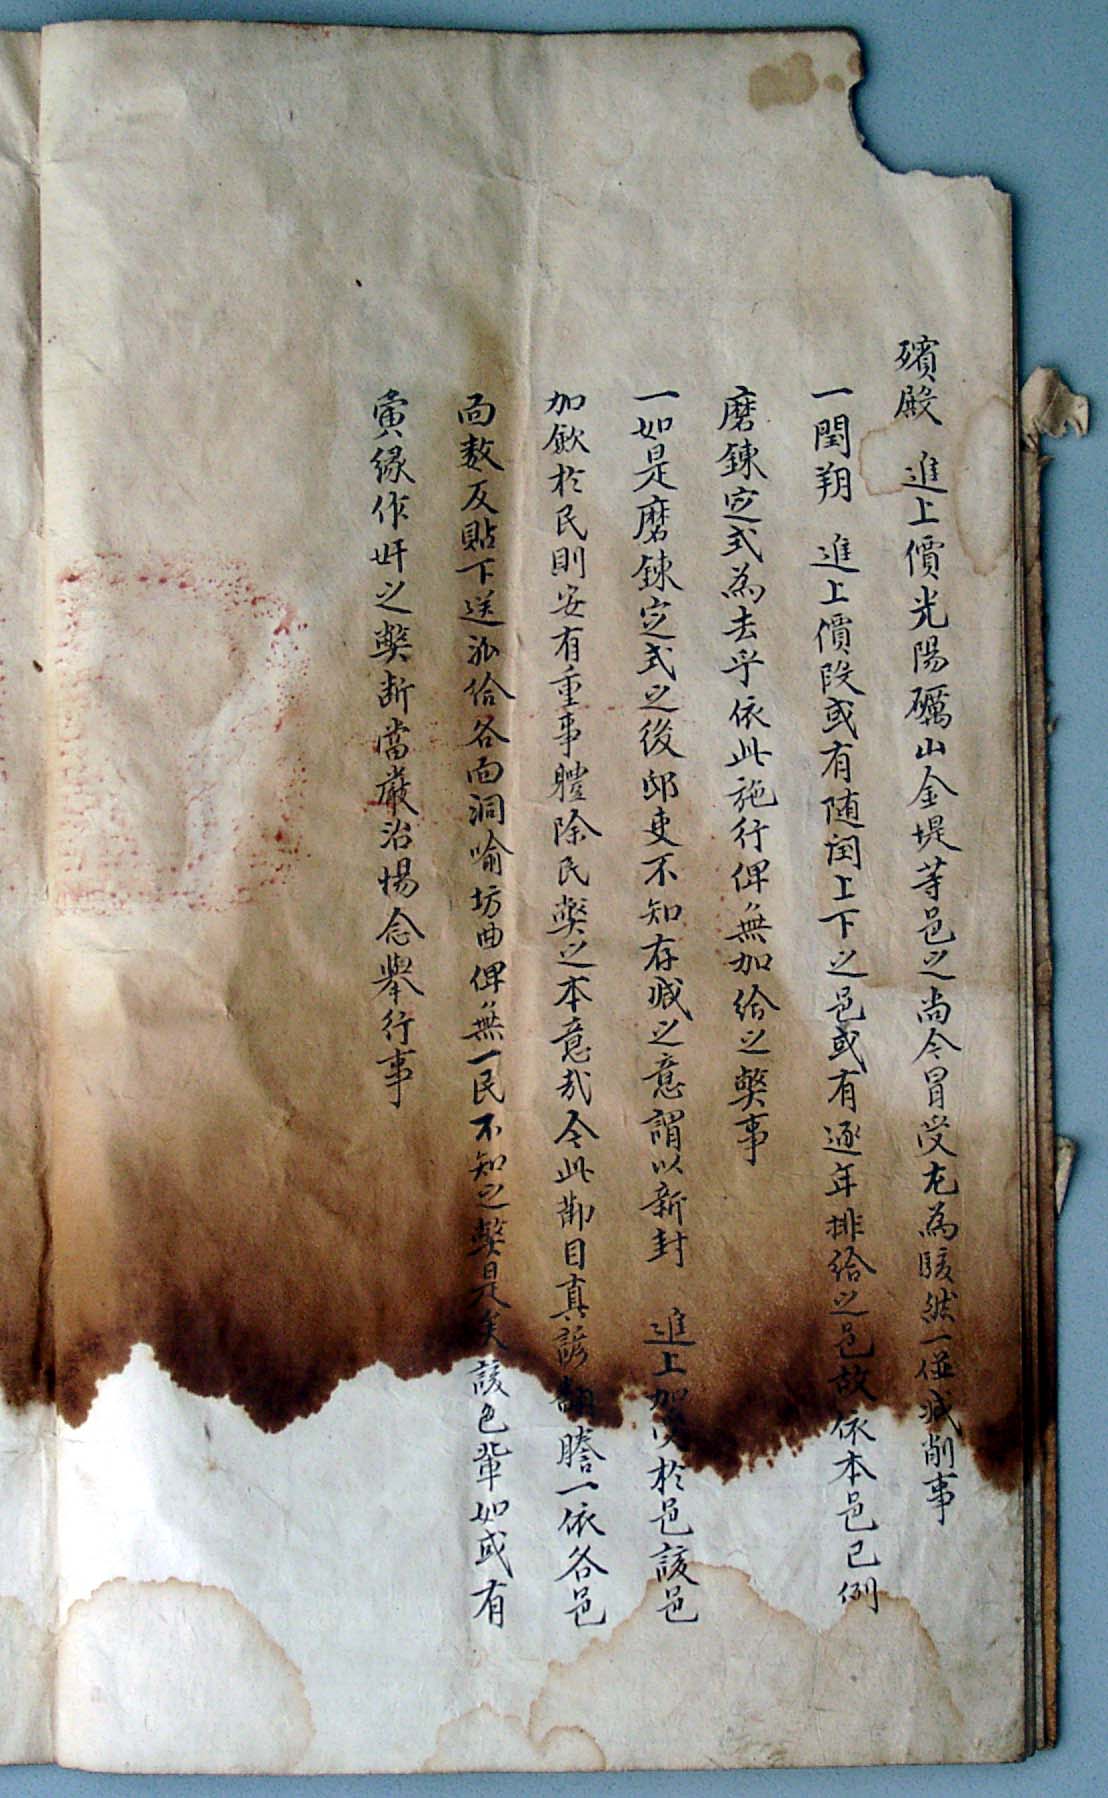 殯殿 進上價光陽礪山金堤等邑之尚今冒受尤為駭然一倂减削事
一閏朔 進上價段或有随閏上下之邑或有逐年排給之邑故依本邑已例
磨鍊定式為去乎依此施行俾無加給之獘事
一如是磨鍊定式之後邸吏不知存减之意謂以新封 進上加於邑該邑
加歛於民則安有重事軆除民獘之本意哉今此節目真諺翻謄一依各邑
面数反貼下送派給各面洞喻坊曲俾無一民不知之獘是矣該色軰如或有
夤缘作奸之獘断當嚴治惕念擧行事